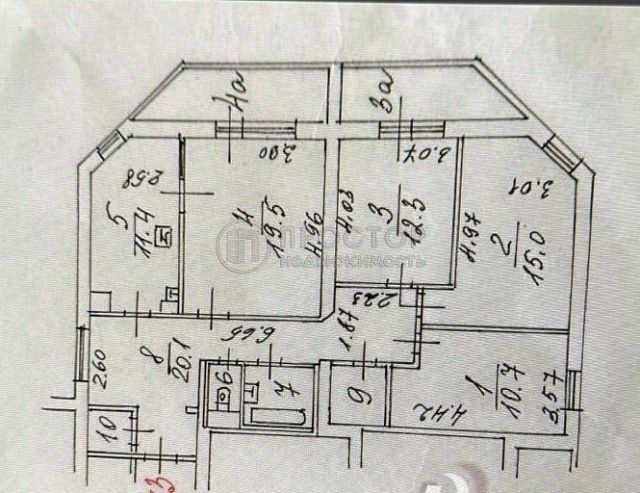 4а
3а
2.58
3.00
3.07
3.01
5
11.4
4
19.5
4.96
4.03
3
12.3
4.97
2
15.0
ПРОСТОР
НЕДВИЖИМОСТЬ
2.23
6.65
1.87
2.60
8
20.1
6
7
9
1
10.7
4.42
3.57
10